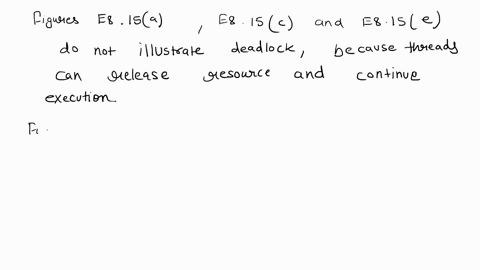 Figures E8.15(a) , E8.15(c) and E8.15(e)
do not illustrate deadlock, because threads
can release resource and continue
execution.